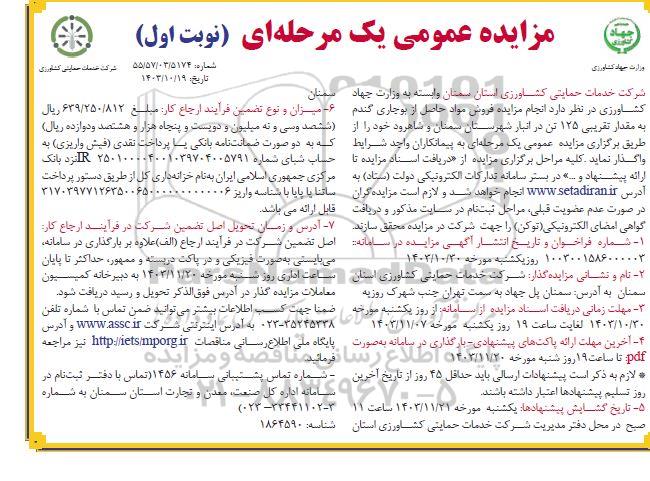 مزایده عمومی یک مرحله‌ای (نوبت اول)
وزارت جهاد کشاورزی
شرکت خدمات حمایتی کشاورزی
شماره: ۵۵/۵۷/۰۳/۵۱۷۴
تاریخ: ۱۴۰۳/۱۰/۱۹
شرکت خدمات حمایتی کشاورزی استان سمنان وابسته به وزارت جهاد
کشاورزی در نظر دارد انجام مزایده فروش مواد حاصل از بوجاری گندم
به مقدار تقریبی ۱۲۵ تن در انبار شهرستان سمنان و شاهرود خود را از
طریق برگزاری مزایده عمومی یک مرحله‌ای به پیمانکاران واجد شرایط
واگذار نماید. کلیه مراحل برگزاری مزایده از «دریافت اسناد مزایده تا
ارائه پیشنهاد و ...» در بستر سامانه تدارکات الکترونیکی دولت (ستاد) به
آدرس www.setadiran.ir انجام خواهد شد و لازم است مزایده‌گران
در صورت عدم عضویت قبلی، مراحل ثبت‌نام در سایت مذکور و دریافت
گواهی امضای الکترونیکی (توکن) را جهت شرکت در مزایده محقق سازند.
۱- شماره فراخوان و تاریخ انتشار آگهی مزایده در سامانه:
۱۰۰۳۰۰۱۵۸۶۰۰۰۰۰۳ روز یکشنبه مورخه ۱۴۰۳/۱۰/۳۰
۲- نام و نشانی مزایده‌گذار: شرکت خدمات حمایتی کشاورزی استان
سمنان به آدرس: سمنان پل جهاد به سمت تهران جنب شهرک روزیه
۳- مهلت زمانی دریافت اسناد مزایده از سامانه: از روز یکشنبه مورخه
۱۴۰۳/۱۰/۳۰ لغایت ساعت ۱۹ روز یکشنبه مورخه ۱۴۰۳/۱۱/۰۷
۴- آخرین مهلت ارائه پاکت‌های پیشنهادی-بارگذاری در سامانه به‌صورت
pdf: تا ساعت ۱۹ روز شنبه مورخه ۱۴۰۳/۱۱/۲۰
* لازم به ذکر است پیشنهادات ارسالی باید حداقل ۴۵ روز از تاریخ آخرین
روز تسلیم پیشنهادها اعتبار داشته باشند.
۵- تاریخ گشایش پیشنهادها: یکشنبه مورخه ۱۴۰۳/۱۱/۲۱ ساعت ۱۱
صبح در محل دفتر مدیریت شرکت خدمات حمایتی کشاورزی استان
سمنان
۶- میزان و نوع تضمین فرآیند ارجاع کار: مبلغ ۶۳۹/۲۵۰/۸۱۲ ریال
(ششصد وسی و نه میلیون و دویست و پنجاه هزار و هشتصد ودوازده ریال)
که به دو صورت ضمانت‌نامه بانکی یا پرداخت نقدی (فیش واریزی) به
حساب شبای شماره IR ۲۵۰۱۰۰۰۰۴۰۰۱۰۳۹۷۰۴۰۰۵۷۹۱ نزد بانک
مرکزی جمهوری اسلامی ایران به‌نام خزانه‌داری کل از طریق دستور پرداخت
ساتنا یا پایا با شناسه واریز ۳۱۷۰۳۹۷۷۱۲۶۳۵۰۰۶۵۰۰۰۰۰۰۰۰۰۰۰۰۶
قابل ارائه می باشد.
۷- آدرس و زمان تحویل اصل تضمین شرکت در فرآیند ارجاع کار:
اصل تضمین شرکت در فرآیند ارجاع (الف) علاوه بر بارگذاری در سامانه،
می‌بایستی به‌صورت فیزیکی و در پاکت دربسته و ممهور، حداکثر تا پایان
ساعت اداری روز شنبه مورخه ۱۴۰۳/۱۱/۲۰ به دبیرخانه کمیسیون
معاملات مزایده گذار در آدرس فوق‌الذکر تحویل و رسید دریافت شود.
ضمنا جهت کسب اطلاعات بیشتر می‌توانید ضمن تماس با شماره تلفن
۳۵۲۴۵۳۳۸-۰۲۳ به آدرس اینترنتی شرکت www.assc.ir و آدرس
پایگاه ملی اطلاع‌رسانی مناقصات http://iets/mporg.ir نیز مراجعه
فرمائید.
- شماره تماس پشتیبانی سامانه ۱۴۵۶ (تماس با دفتر ثبت‌نام در
سامانه اداره کل صنعت، معدن و تجارت استان سمنان به شماره
۳-۳۳۴۴۱۱۰۲-۰۲۳)
شناسه: ۱۸۶۴۵۹۰
۰۲۱-۸۸۳۴۹۶۷۰-۵